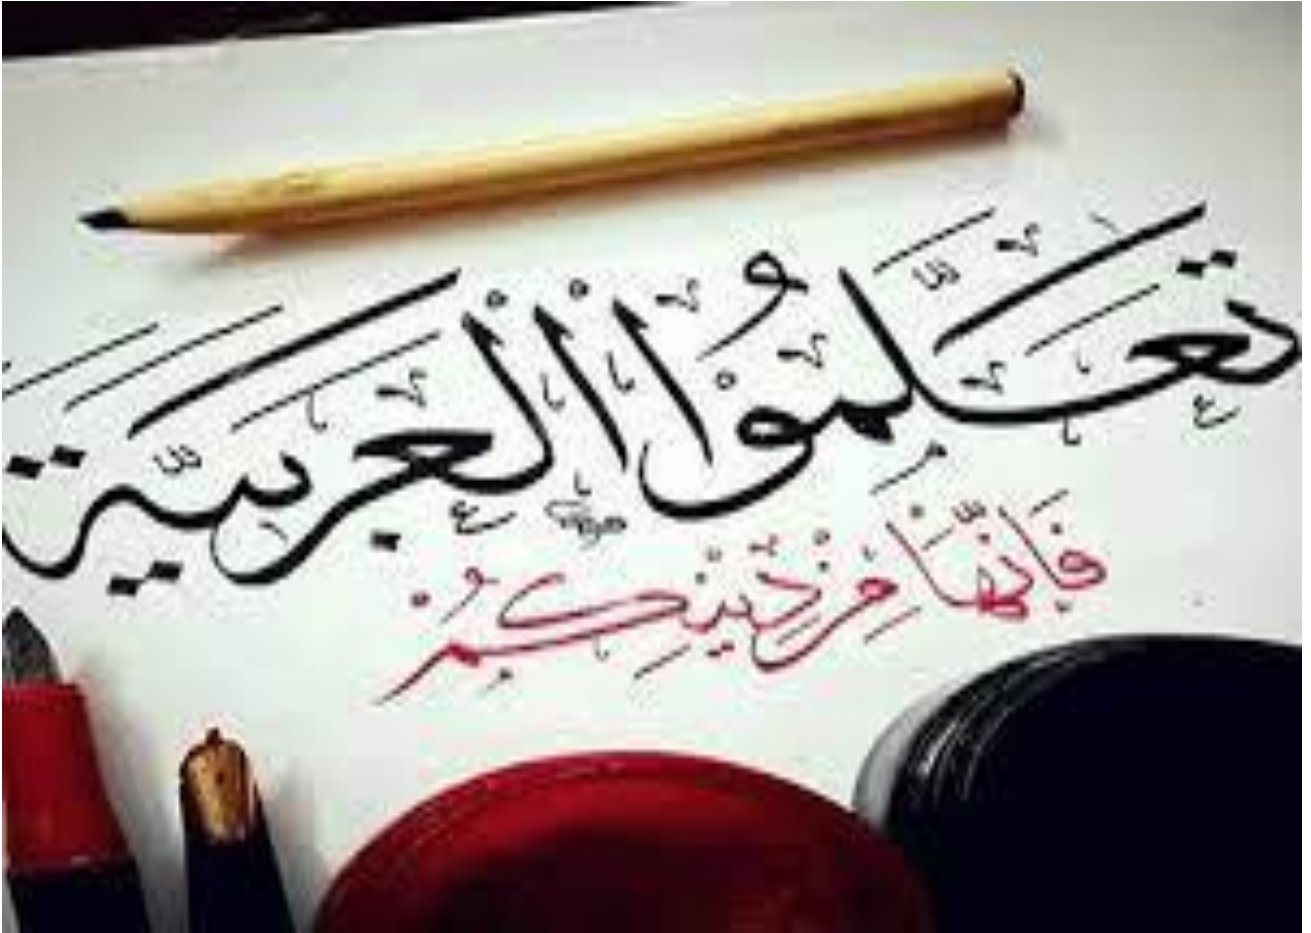 تَعَلَّمُوْا الْعَرَبِيَّة
فَإِنَّهَا مِنْ دِينِكُمْ